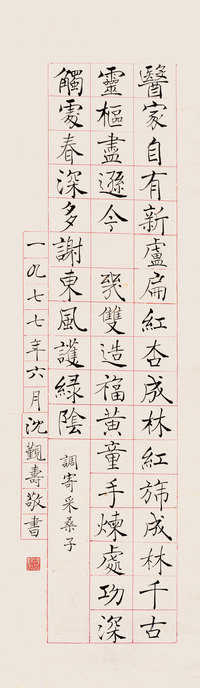 醫家自有新盧扁紅杏成林紅旆成林千古
靈樞盡遜今 雙造福黃童手煉處功深
觸處春深多謝東風護綠陰
調寄采桑子
一九七七年六月沈覲壽敬書